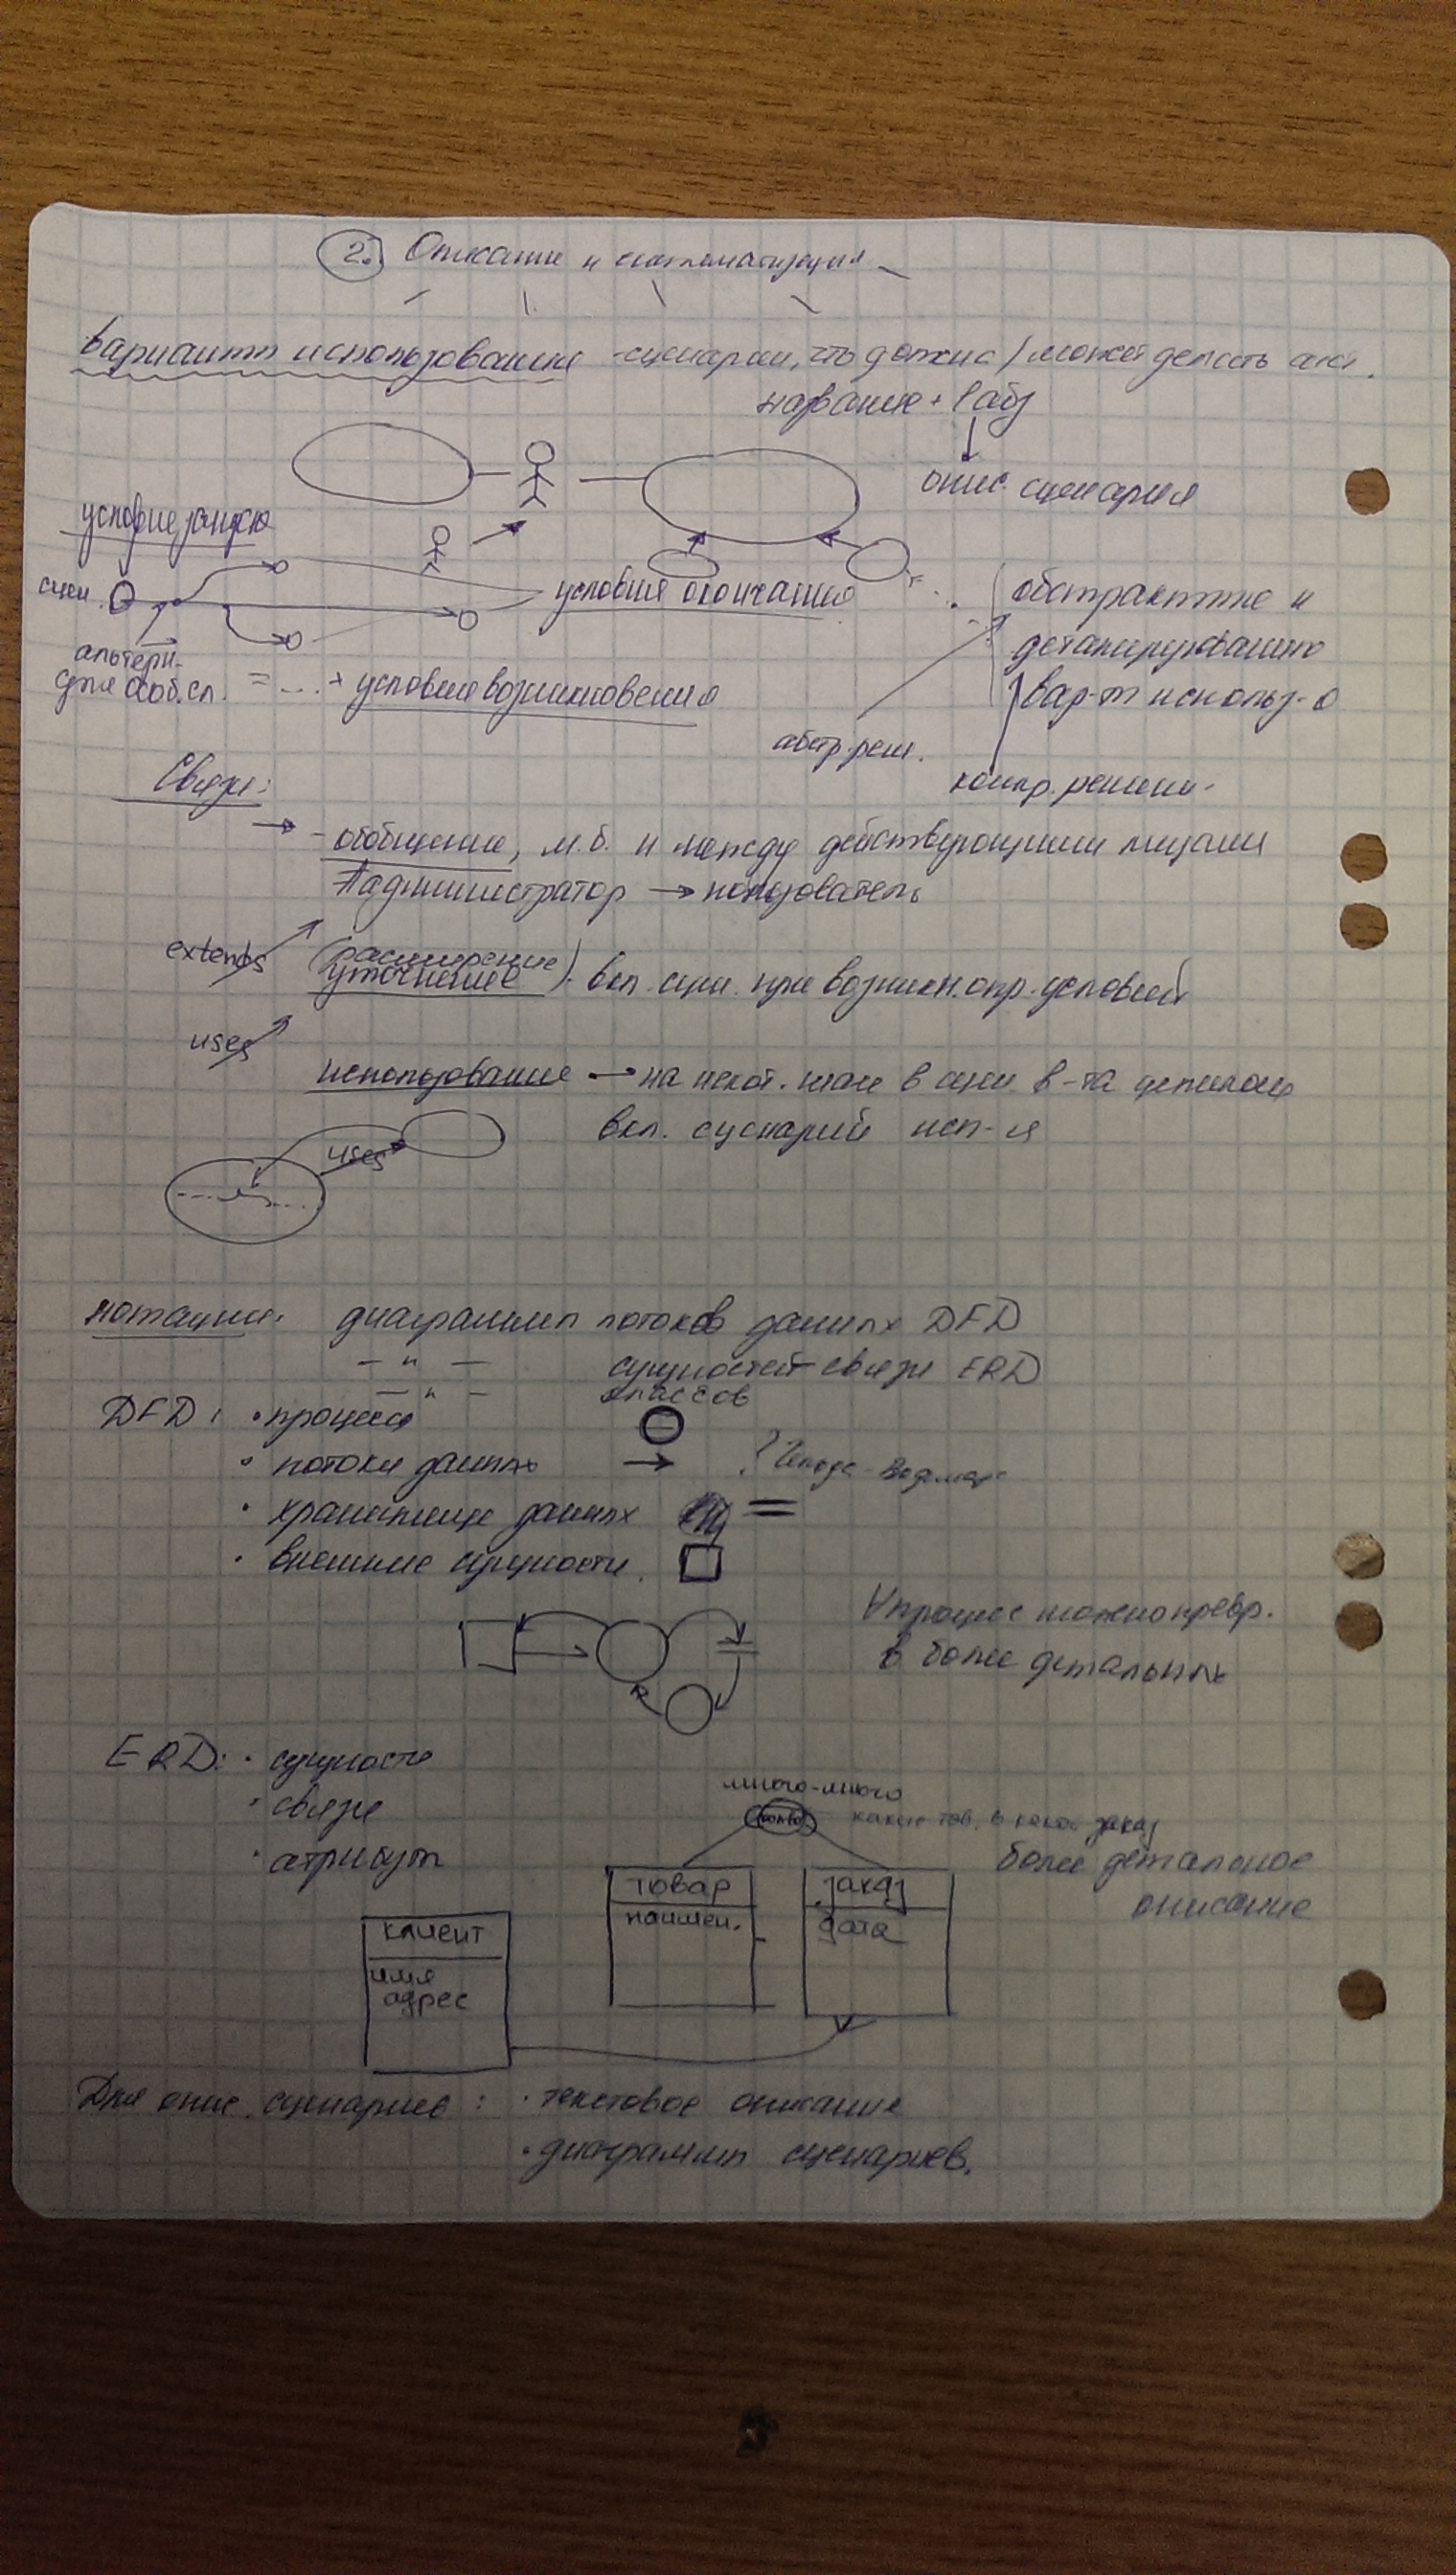 2. Описание и систематизация
варианты использования - сценарии, что должна / может делать
название + 1 абз
опис. сценария
условие запуска
сцен.
условия окончания
абстрактные и
детализированные
вар-ты использ-я
альтерн.
для доб.сл. = ... + условие возникновения
абстр. реш.
конкр. решени
Связи:
→ - обобщение, м.б. и между действующими лицами
администратор → пользователь
extends (расширение
уточнение) - вкл. сцен. при возникн. опр. условий
uses
использование → на некот. шаге в сцен. в-та
вкл. сценарий исп-я
uses
нотации: диаграммы потоков данных DFD
— " — сущностей-связи ERD
— " — классов
DFD: • процессы
• потоки данных →
• хранилище данных
• внешние сущности
∀ процесс можно превр.
в более детальных
ERD: • сущности
• связи
• атрибуты
много-много
кол-во какие тов. в каком заказ
более детальное
описание
товар
наимен.
заказ
дата
клиент
имя
адрес
Для опис. сценариев: • текстовое описание
• диаграммы сценариев.